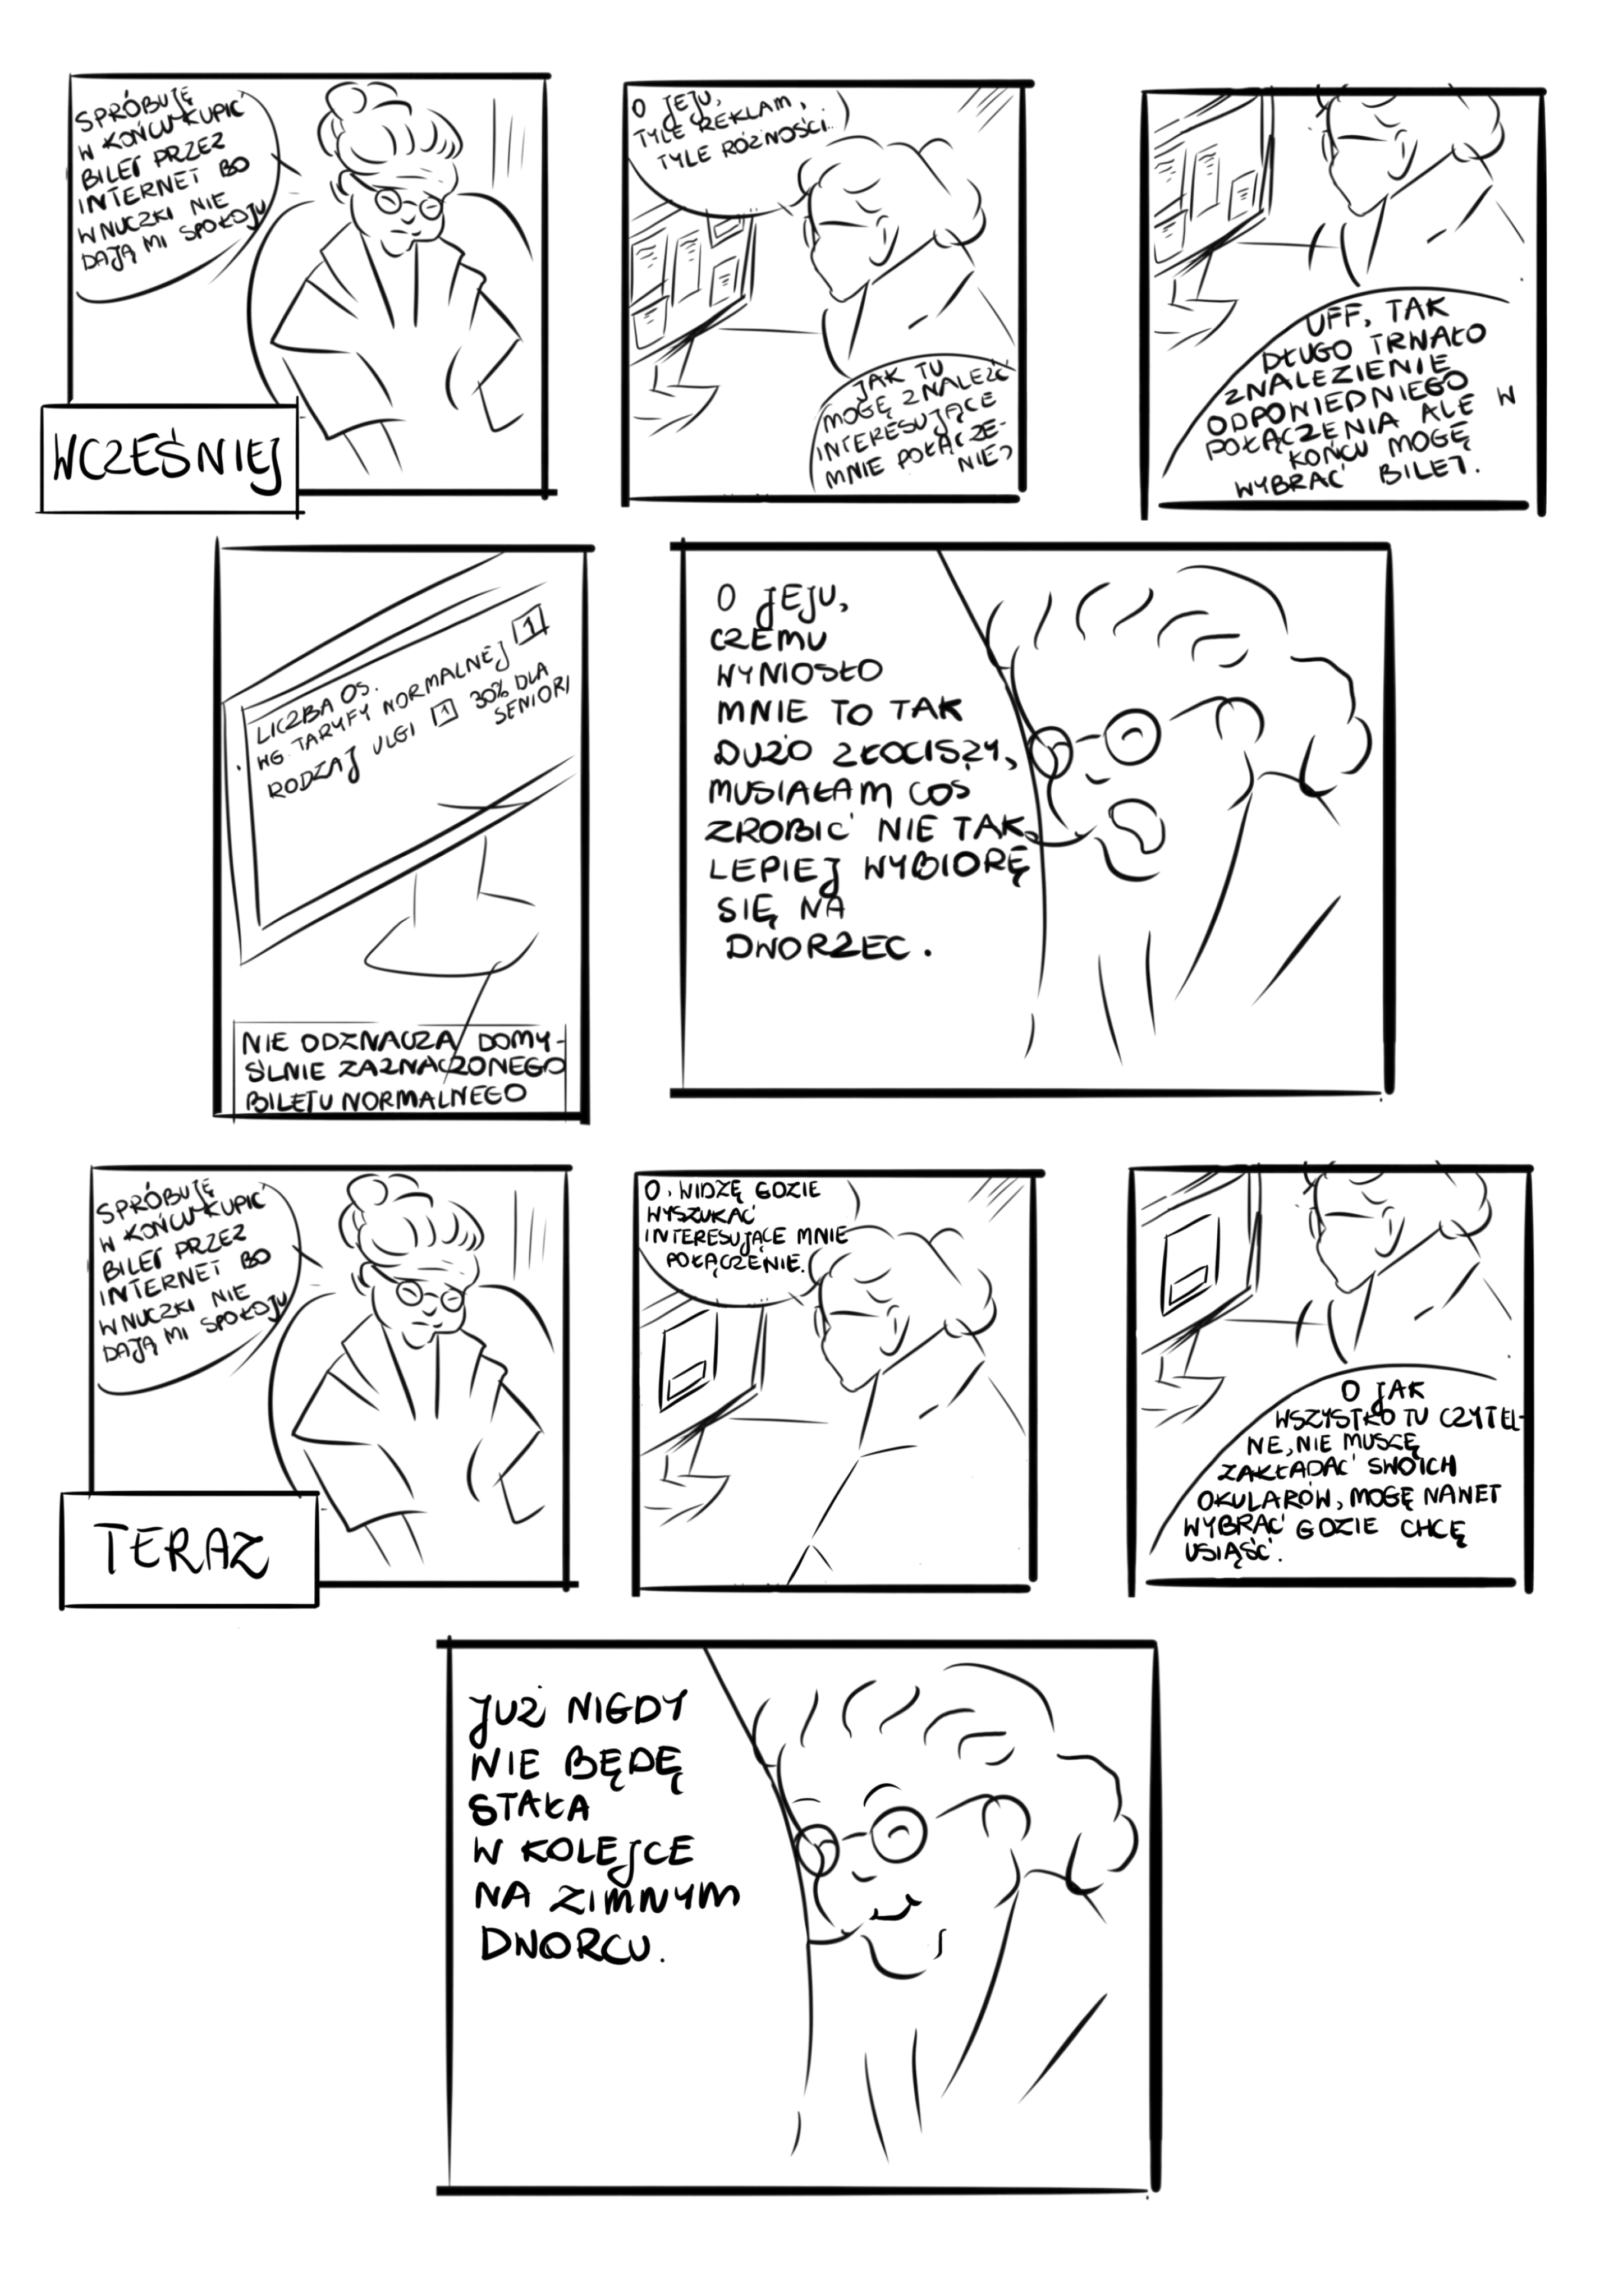 SPRÓBUJĘ
W KOŃCU KUPIĆ
BILET PRZEZ
INTERNET BO
WNUCZKI NIE
DAJĄ MI SPOKOJU
WCZEŚNIEJ
O JEJU,
TYLE REKLAM,
TYLE RÓŻNOŚCI...
JAK TU
MOGĘ ZNALEŹĆ
INTERESUJĄCE
MNIE POŁĄCZE-
NIE?
UFF, TAK
DŁUGO TRWAŁO
ZNALEZIENIE
ODPOWIEDNIEGO
POŁĄCZENIA ALE W
KOŃCU MOGĘ
WYBRAĆ BILET.
LICZBA OS.
WG. TARYFY NORMALNEJ 1
RODZAJ ULGI 1 30% DLA
SENIORI
NIE ODZNACZA DOMY-
ŚLNIE ZAZNACZONEGO
BILETU NORMALNEGO
O JEJU,
CZEMU
WYNIOSŁO
MNIE TO TAK
DUŻO ZŁOCISZY,
MUSIAŁAM COS
ZROBIĆ NIE TAK,
LEPIEJ WYBIORĘ
SIĘ NA
DWORZEC.
SPRÓBUJĘ
W KOŃCU KUPIĆ
BILET PRZEZ
INTERNET BO
WNUCZKI NIE
DAJĄ MI SPOKOJU
TERAZ
O, WIDZĘ GDZIE
WYSZUKAĆ
INTERESUJĄCE MNIE
POŁĄCZENIE.
O JAK
WSZYSTKO TU CZYTEL-
NE, NIE MUSZĘ
ZAKŁADAĆ SWOICH
OKULARÓW, MOGĘ NAWET
WYBRAĆ GDZIE CHCĘ
USIĄŚĆ.
JUŻ NIGDY
NIE BĘDĘ
STAŁA
W KOLEJCE
NA ZIMNYM
DWORCU.